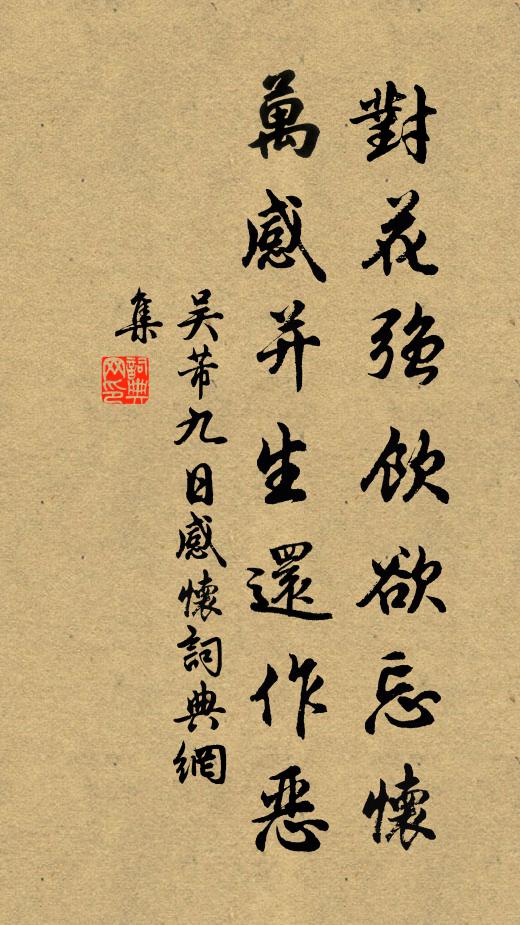 對花強飲欲忘懷
萬感并生還作惡
吴芾九日感懷詞典網
集
詞典
网印